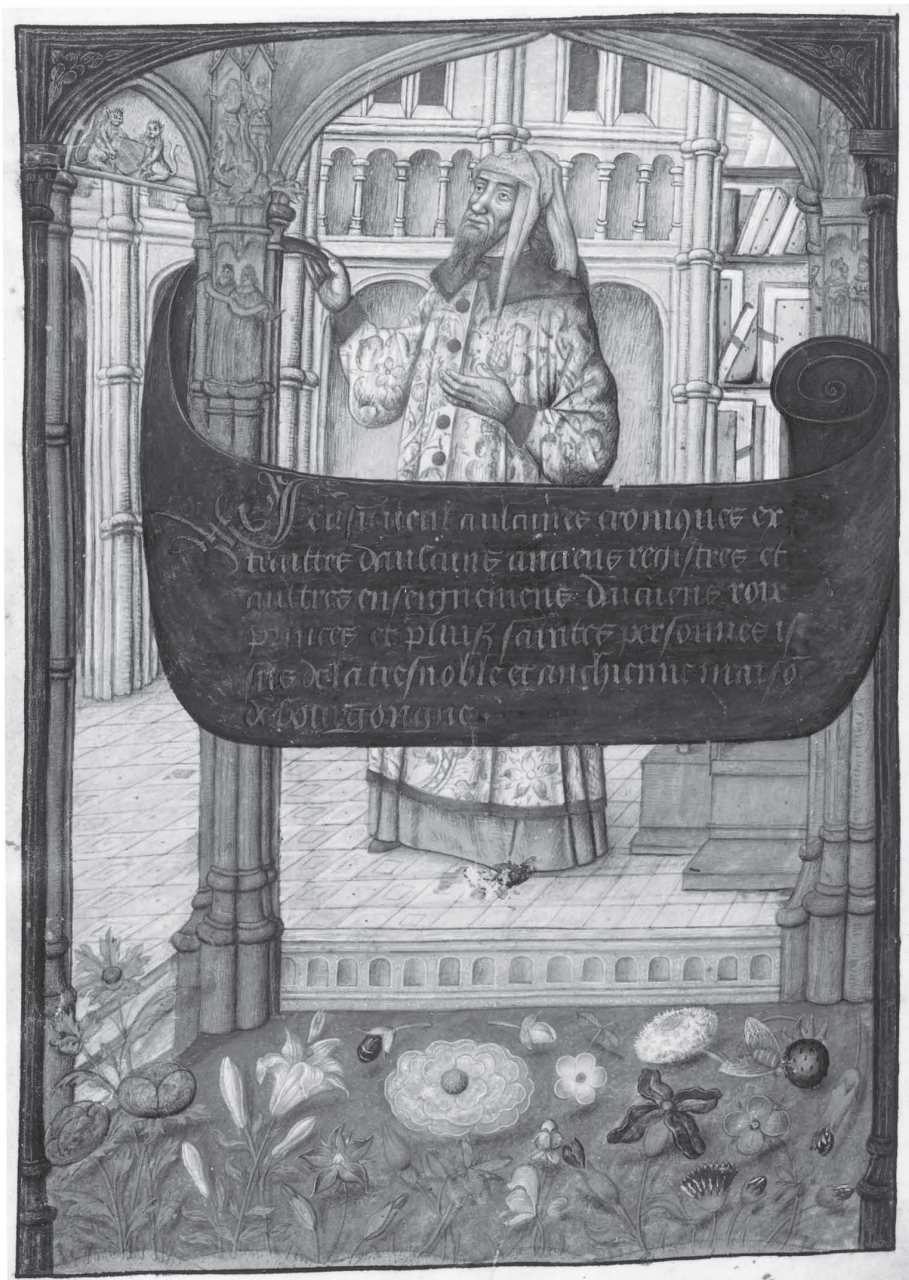 Cy ensuivent aulcunes croniques ex
traittes daulcuns anciens registres et
aultres enseignemens danciens roix
princes et pluisrs saintes personnes is
sus de la tresnoble et anchienne maiso
de bourgongne.